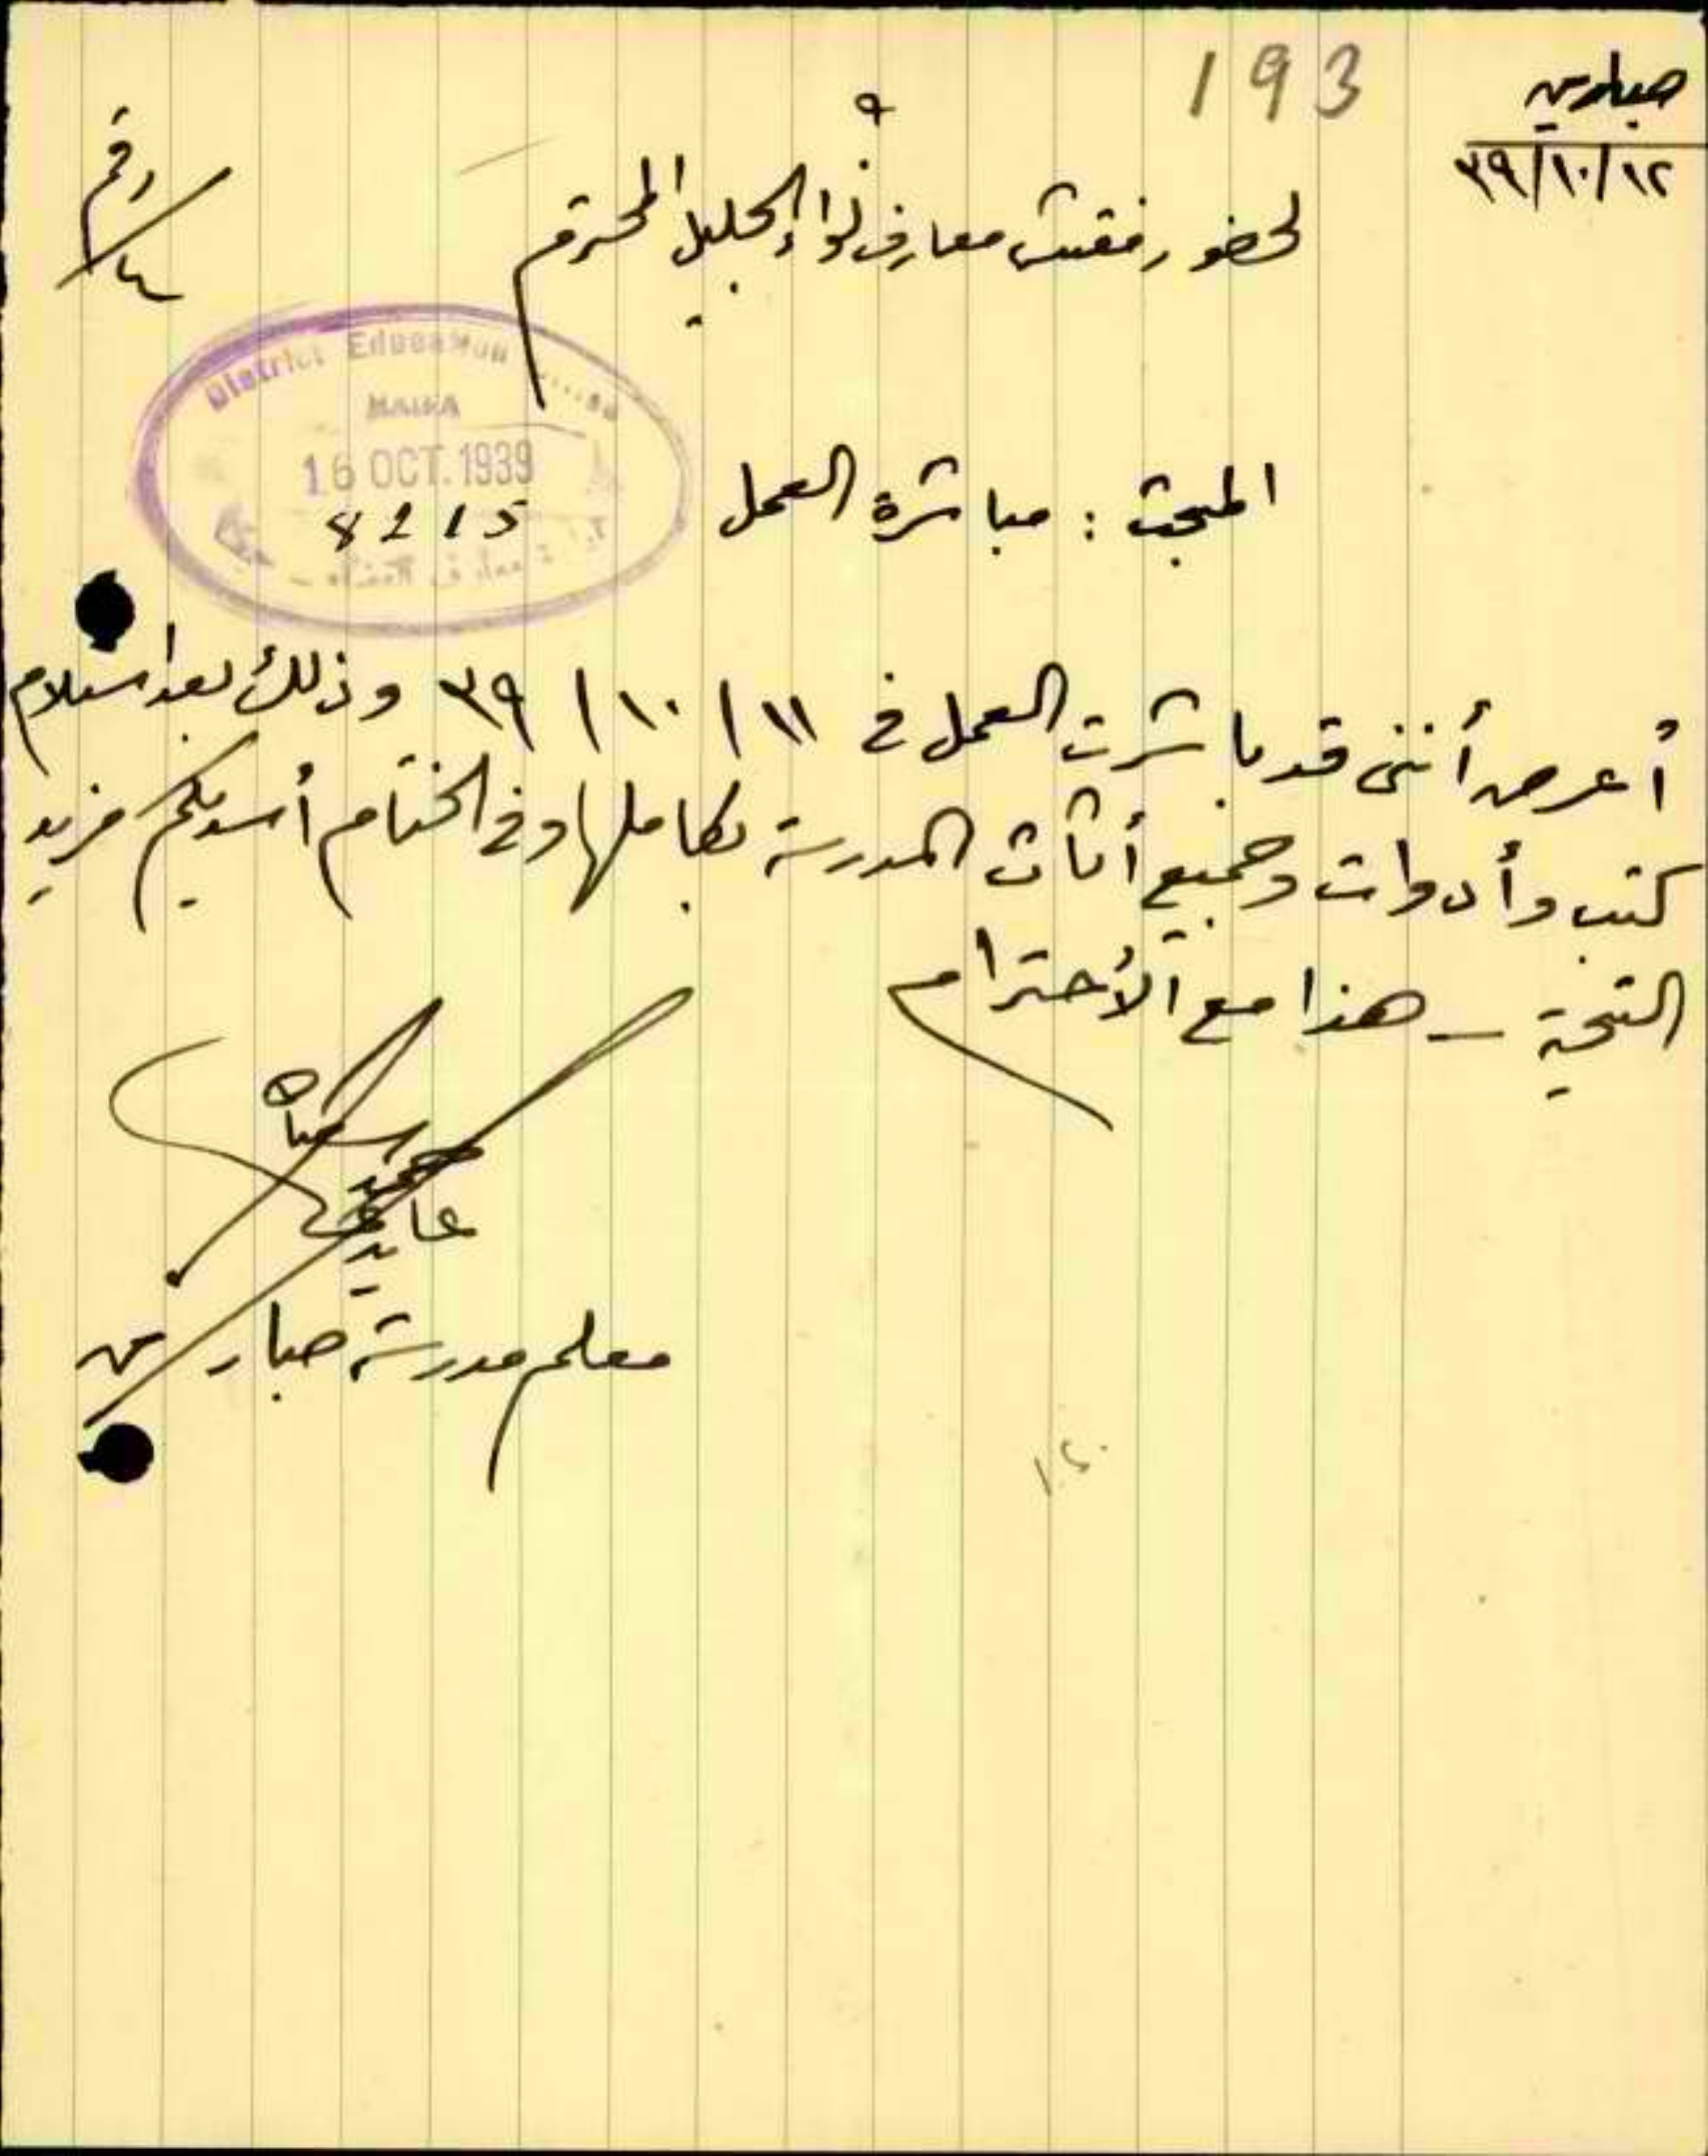 193
صبارين
١٢/١٠/٣٩
رقم
لحضور مفتش معارف لواء الجليل المحترم
District Education
HAIFA
16 OCT. 1939
8215
المبحث : مباشرة العمل
أعرض أنني قد باشرت العمل في ١١/١٠/٣٩ وذلك بعد استلام
كتب وأدوات وجميع أثاث المدرسة بكاملها وفي الختام أسديكم مزيد
التحية – هذا مع الأحترام
عايد
معلم مدرسة صبارين